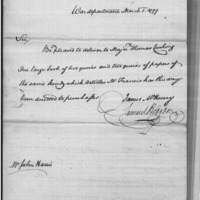 War department March 1. 1799
Sir,
Be pleased to deliver to Major Thomas Cushing
One large book of two quires and two quires of paper of
the same kind, which articles Mr Francis has this day
been directed to purchase
James McHenry
Mr John Harris